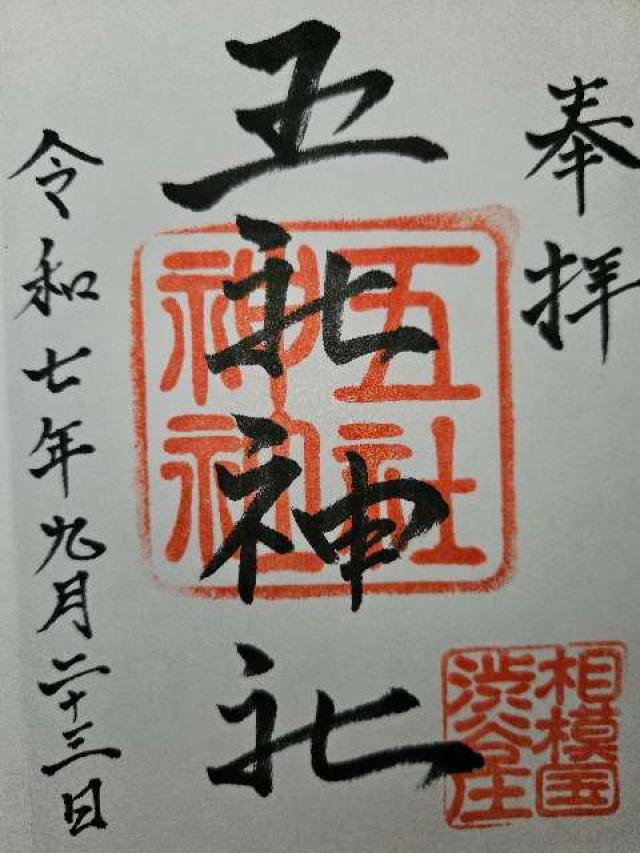 奉拝
五社神社
五社
神社
相模国
渋谷庄
令和七年九月二十三日